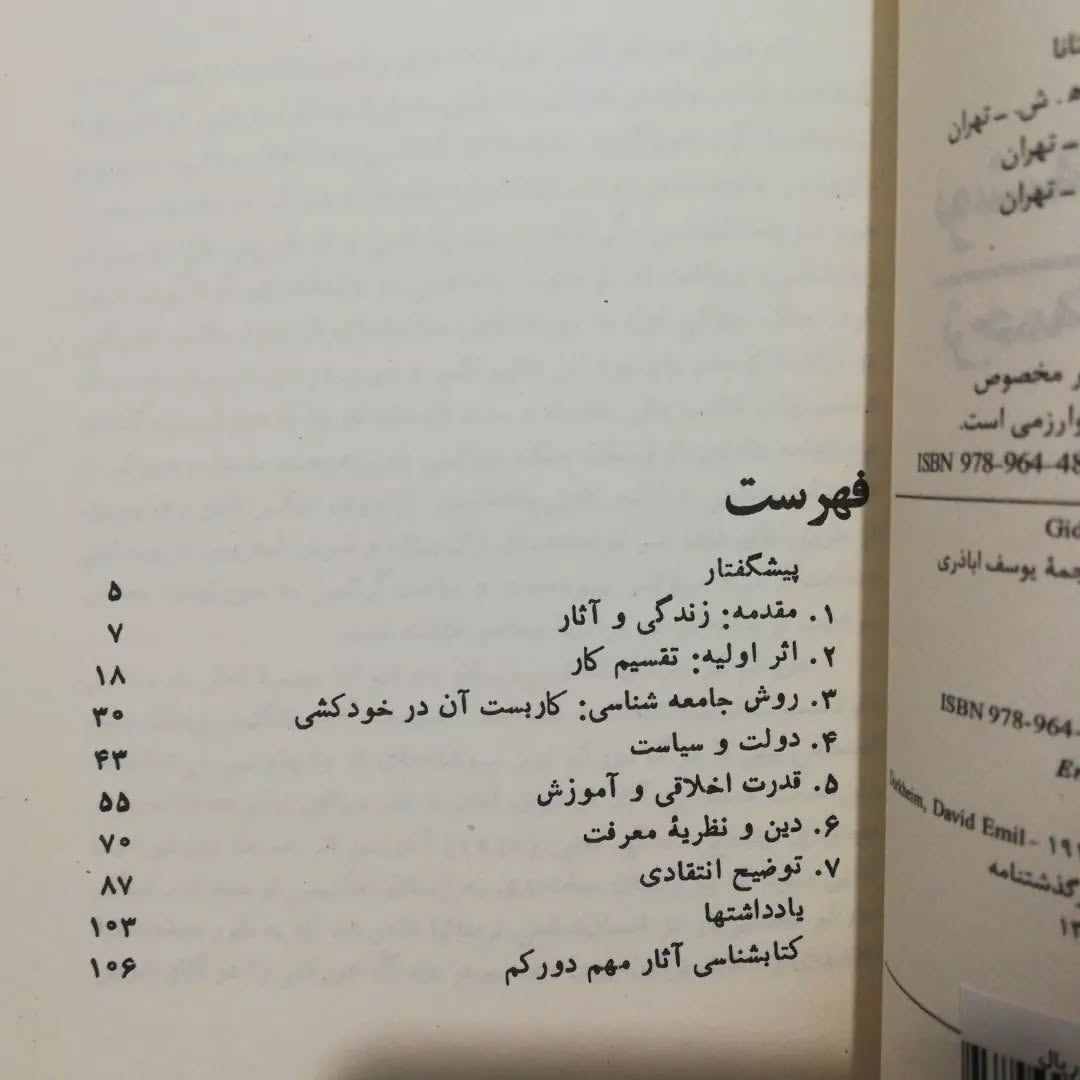 فهرست
پیشگفتار ۵
۱. مقدمه: زندگی و آثار ۷
۲. اثر اولیه: تقسیم کار ۱۸
۳. روش جامعه شناسی: کاربست آن در خودکشی ۳۰
۴. دولت و سیاست ۴۳
۵. قدرت اخلاقی و آموزش ۵۵
۶. دین و نظریهٔ معرفت ۷۰
۷. توضیح انتقادی ۸۷
یادداشتها ۱۰۳
کتابشناسی آثار مهم دورکم ۱۰۶
ه‍. ش. ـ تهران
ـ تهران
ـ تهران
مخصوص
است.
ISBN 978-964-48
یوسف اباذری
ISBN 978-964-
David Emil -